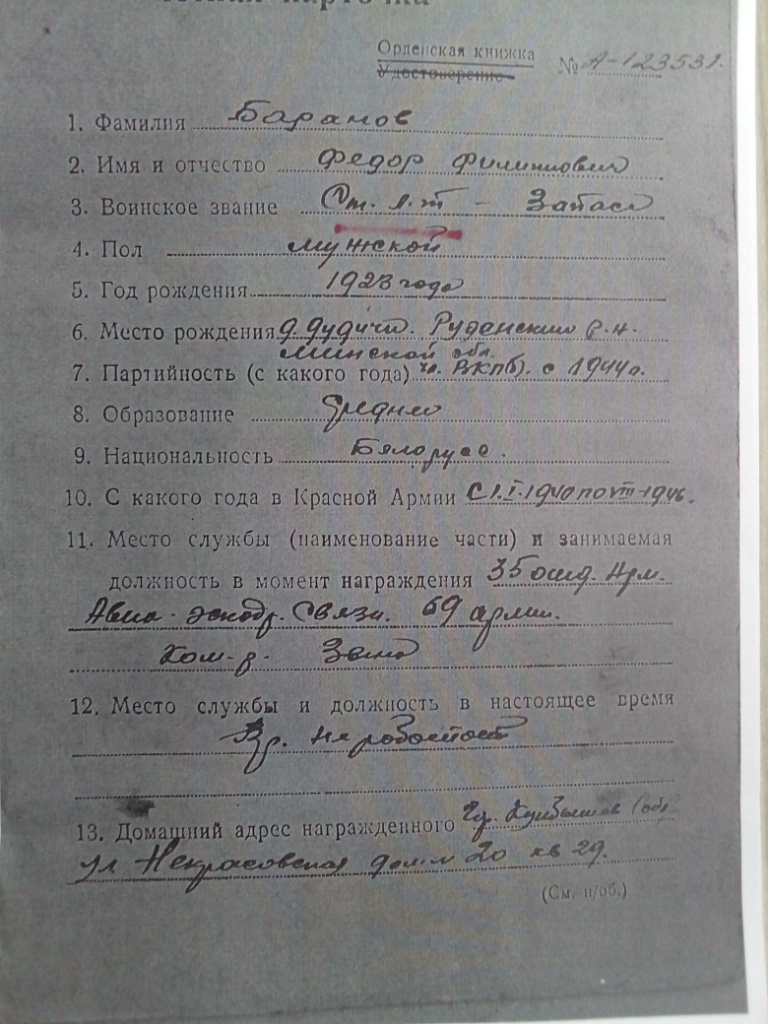 Орденская книжка
Удостоверение № А-123531.
1. Фамилия Баранов
2. Имя и отчество Федор Филиппович
3. Воинское звание Ст. л-т - Запаса
4. Пол мужской
5. Год рождения 1923 года
6. Место рождения д. Дудичи. Руденский р-н.
Минской обл.
7. Партийность (с какого года) чл. ВКП(б). с 1944г.
8. Образование Среднее
9. Национальность Белорусс.
10. С какого года в Красной Армии С 1.I.1940 по VIII-1946.
11. Место службы (наименование части) и занимаемая
должность в момент награждения 35 Арм.
Авиа-эскадр. Связи. 69 армии.
Ком-р. Звена
12. Место службы и должность в настоящее время
Вр. не работает
13. Домашний адрес награжденного Гор. Куйбышев
ул Некрасовская дом № 20 кв 29.
(См. н/об.)